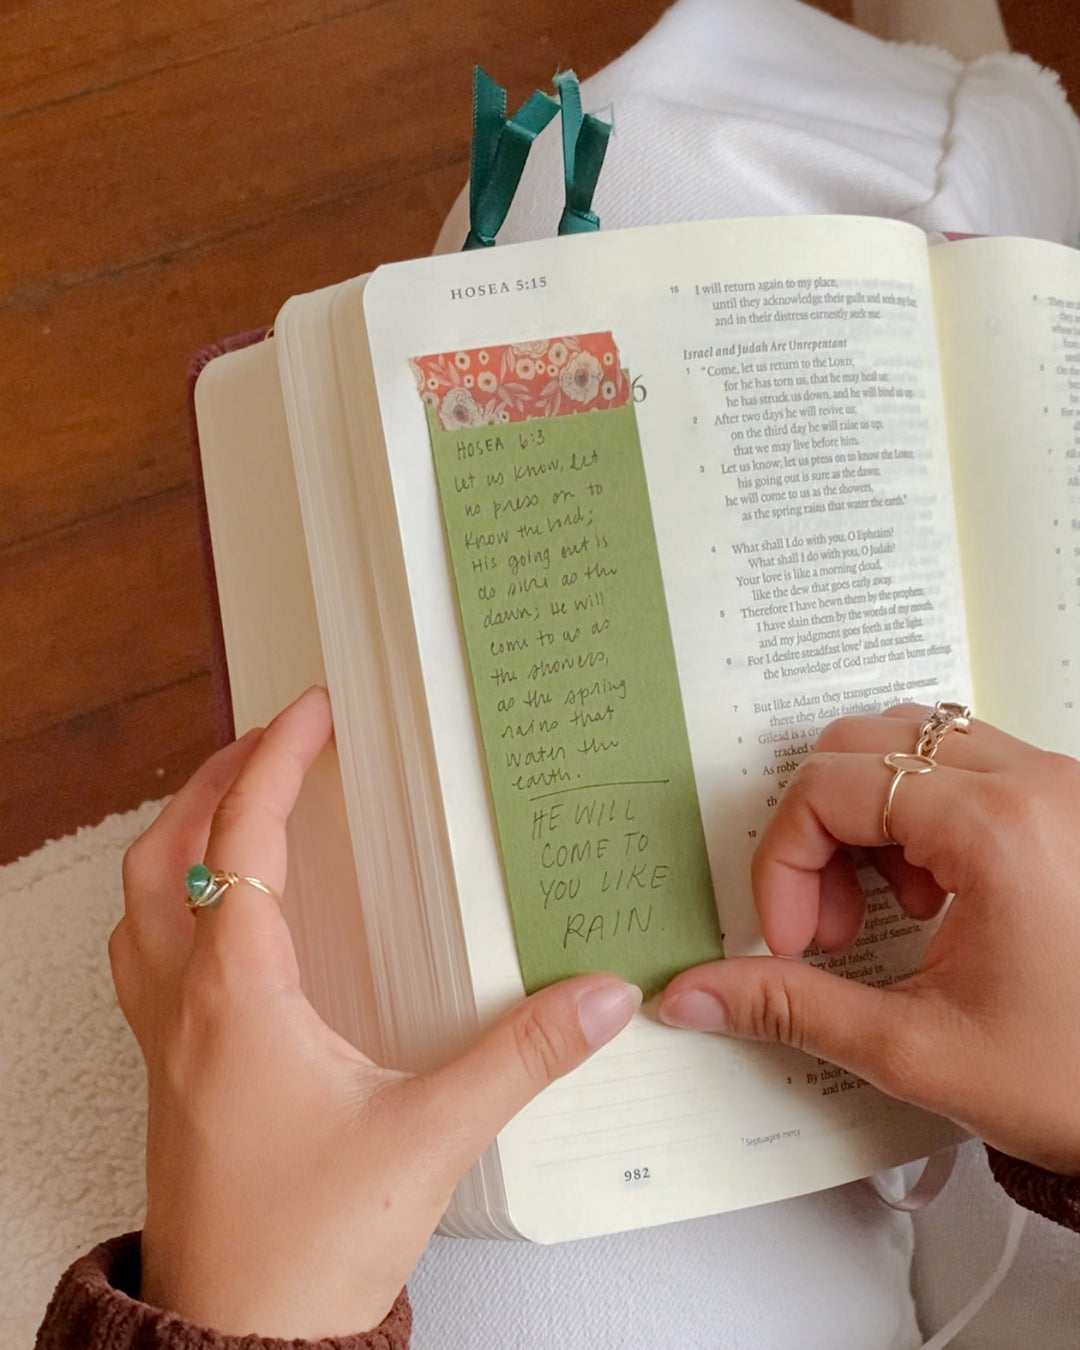 HOSEA 5:15
HOSEA 6:3
Let us know, let
us press on to
know the Lord;
His going out is
as sure as the
dawn; He will
come to us as
the showers,
as the spring
rains that
water the
earth.
HE WILL
COME TO
YOU LIKE
RAIN.
15 I will return again to my place,
until they acknowledge their guilt and seek my face,
and in their distress earnestly seek me.
Israel and Judah Are Unrepentant
6
1 "Come, let us return to the LORD;
for he has torn us, that he may heal us;
he has struck us down, and he will bind us up.
2 After two days he will revive us;
on the third day he will raise us up,
that we may live before him.
3 Let us know; let us press on to know the LORD;
his going out is sure as the dawn;
he will come to us as the showers,
as the spring rains that water the earth."
4 What shall I do with you, O Ephraim?
What shall I do with you, O Judah?
Your love is like a morning cloud,
like the dew that goes early away.
5 Therefore I have hewn them by the prophets;
I have slain them by the words of my mouth,
and my judgment goes forth as the light.
6 For I desire steadfast love¹ and not sacrifice,
the knowledge of God rather than burnt offerings.
7 But like Adam they transgressed the covenant;
there they dealt faithlessly with me.
8 Gilead is a city
tracked
9 As robb
10
Israel,
Ephraim
deeds of Samaria,
they deal falsely;
breaks in,
raid outside
3 By their
and the
1 Septuagint mercy
982